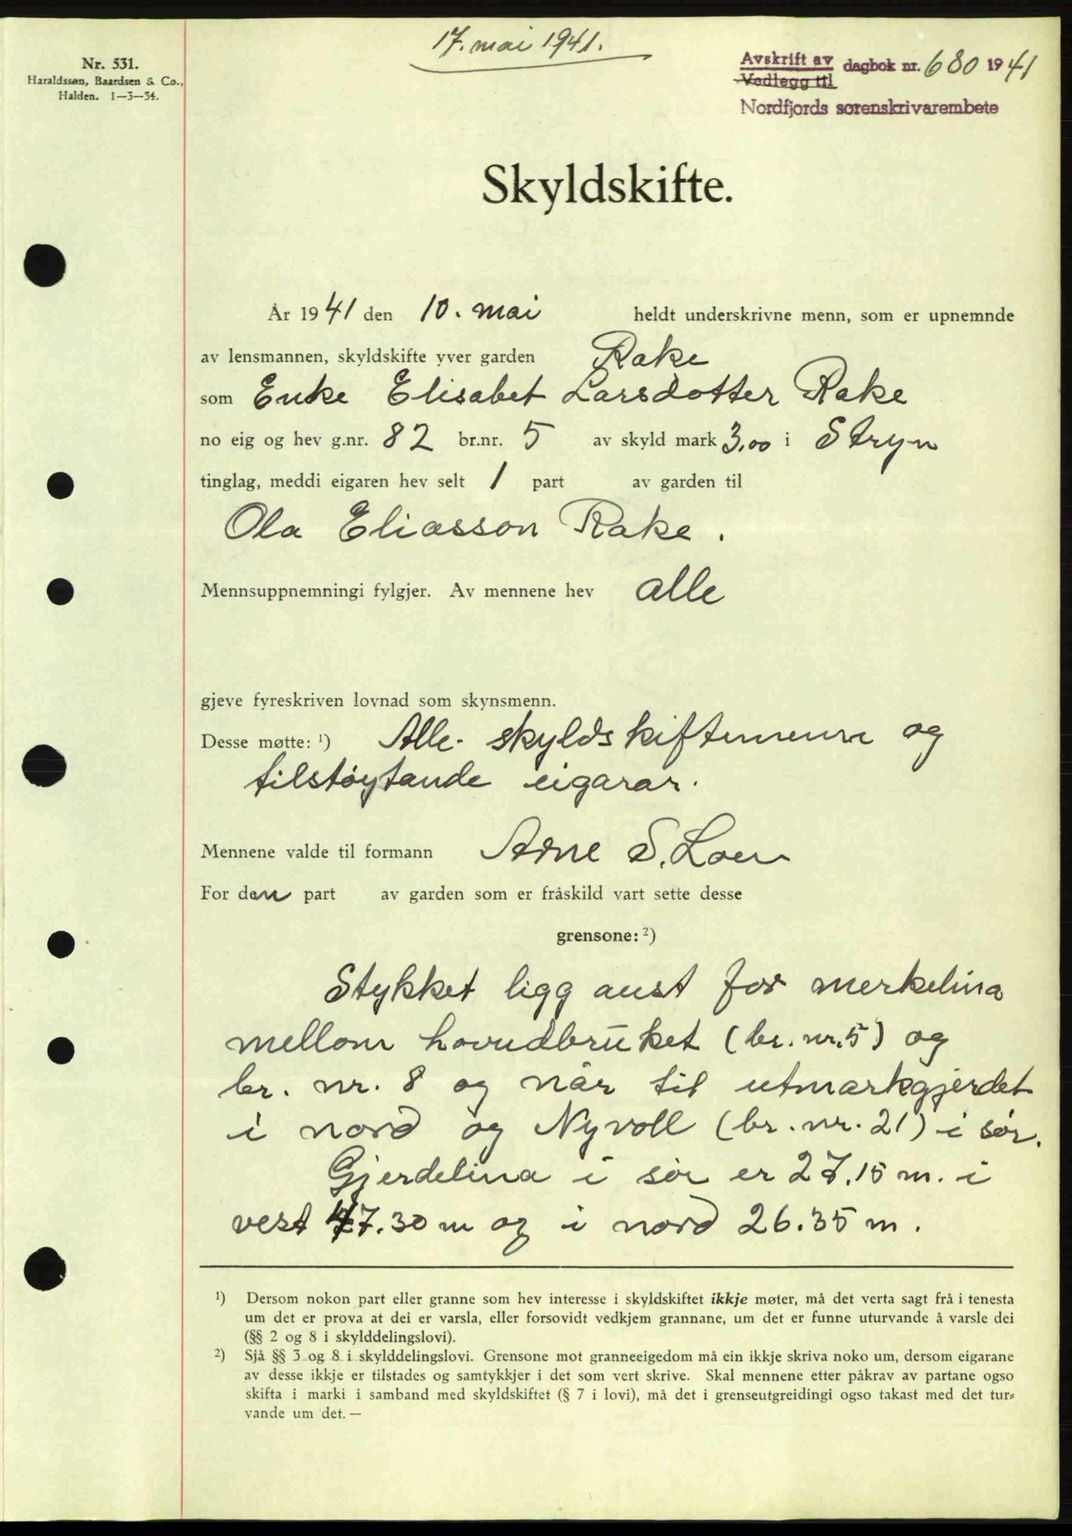 17. mai 1941.
Nr. 531.
Haraldssøn, Baardsen & Co.,
Halden. 1—3—34.
Avskrift av
Vedlegg til
dagbok nr. 680 1941
Nordfjords sorenskrivarembete
Skyldskifte.
År 1941 den 10. mai heldt underskrivne menn, som er upnemnde
av lensmannen, skyldskifte yver garden Rake
som Enke Elisabet Larsdotter Rake
no eig og hev g.nr. 82 br.nr. 5 av skyld mark 3,00 i Stryn
tinglag, meddi eigaren hev selt 1 part av garden til
Ola Eliasson Rake.
Mennsuppnemningi fylgjer. Av mennene hev alle
gjeve fyreskriven lovnad som skynsmenn.
Desse møtte: ¹) Alle skyldskiftemenn og
tilstøytande eigarar.
Mennene valde til formann Arne S. Loen
For den part av garden som er fråskild vart sette desse
grensone: ²)
Stykket ligg aust for merkelina
mellom hovudbruket (br. nr. 5) og
br. nr. 8 og når til utmarkgjerdet
i nord og Nyvoll (br. nr. 21) i sør.
Gjerdelina i sør er 27.15 m. i
vest 47.30 m og i nord 26.35 m.
¹) Dersom nokon part eller granne som hev interesse i skyldskiftet ikkje møter, må det verta sagt frå i tenesta
um det er prova at dei er varsla, eller forsovidt vedkjem grannane, um det er funne uturvande å varsle dei
(§§ 2 og 8 i skylddelingslovi).
²) Sjå §§ 3 og 8 i skylddelingslovi. Grensone mot granneeigedom må ein ikkje skriva noko um, dersom eigarane
av desse ikkje er tilstades og samtykkjer i det som vert skrive. Skal mennene etter påkrav av partane ogso
skifta i marki i samband med skyldskiftet (§ 7 i lovi), må det i grenseutgreidingi ogso takast med det tur-
vande um det. —